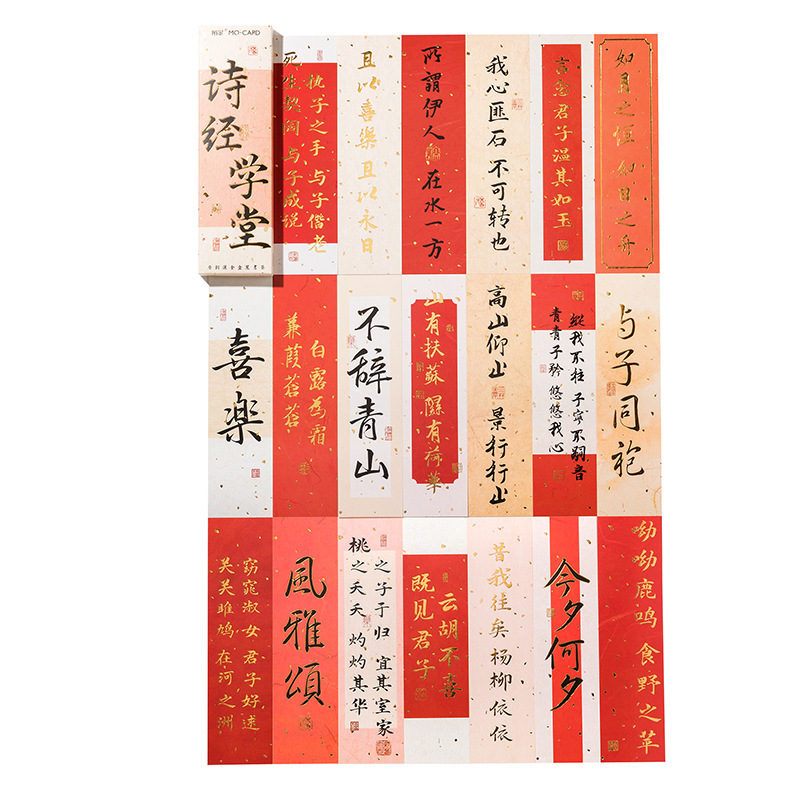 MO-CARD
诗经
学堂
死生契阔 与子成说
执子之手 与子偕老
且以喜樂 且以永日
所謂伊人 在水一方
我心匪石 不可转也
言念君子温其如玉
如月之恒 如日之升
喜樂
蒹葭蒼蒼
白露為霜
不辞青山
山有扶蘇 隰有荷華
高山仰止 景行行止
青青子衿 悠悠我心
縱我不往 子宁不嗣音
与子同袍
关关雎鸠 在河之洲
窈窕淑女 君子好逑
風雅頌
桃之夭夭 灼灼其华
之子于归 宜其室家
既见君子
云胡不喜
昔我往矣 杨柳依依
今夕何夕
呦呦鹿鸣 食野之苹